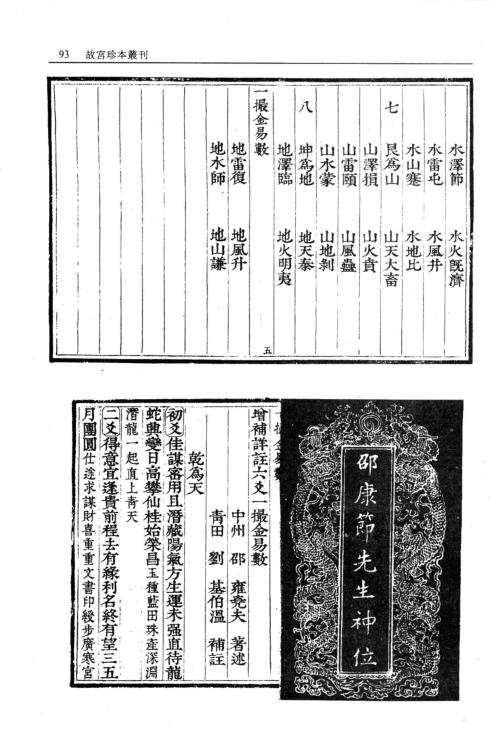 93 故宮珍本叢刊
水澤節 水火既濟
水雷屯 水風井
水山蹇 水地比
七 艮為山 山天大畜
山澤損 山火賁
山雷頤 山風蠱
山水蒙 山地剝
八 坤為地 地天泰
地澤臨 地火明夷
一撮金易數 五
地雷復 地風升
地水師 地山謙
邵康節先生神位
一撮金易數
增補詳註六爻一撮金易數
中州 邵 雍堯夫 著述
青田 劉 基伯溫 補註
乾為天
初爻佳謀密用且潛藏陽氣方生運未强直待龍
蛇興變日高攀仙桂始榮昌玉種藍田珠產深淵
潛龍一起直上青天
二爻得意宜逢貴前程去有緣利名終有望三五
月團圓仕途求謀財喜重重文書印綬步廣寒宮